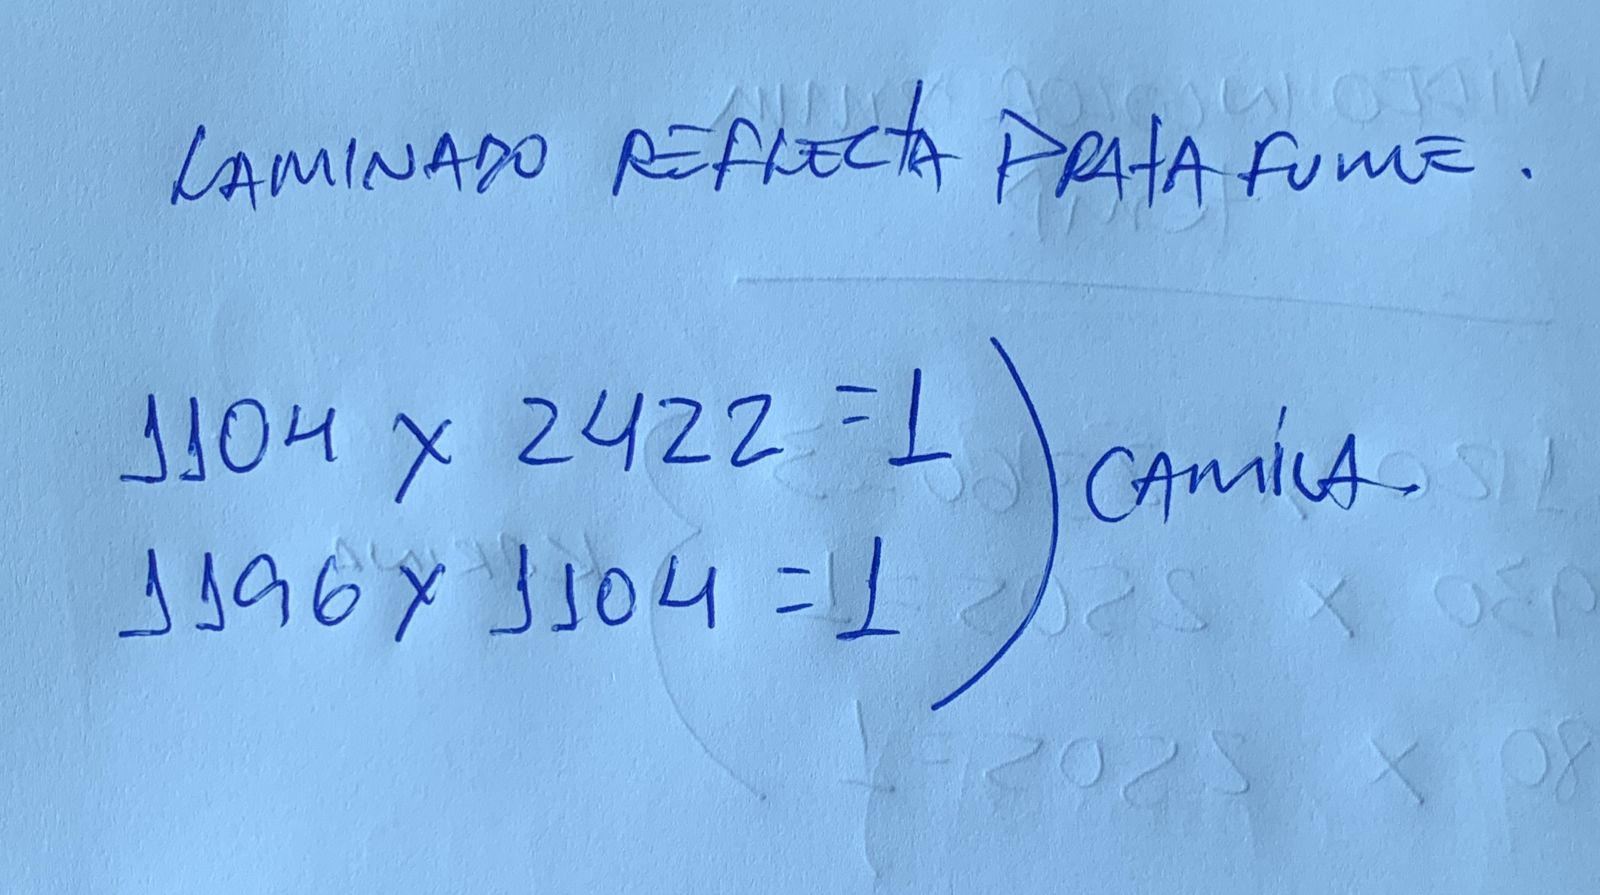 LAMINADO REFLECTA PRATA FUME.
1104 x 2422 = 1
CAMILA
1196 x 1104 = 1